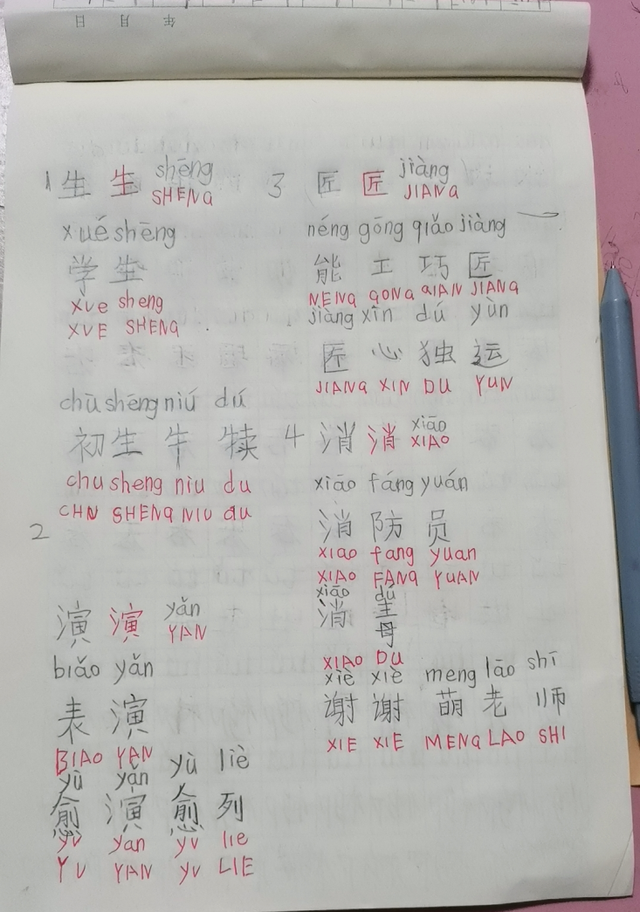 年 月 日
1 生 生 shēng
SHENG
xué shēng
学 生
xue sheng
XUE SHENG
chū shēng niú dú
初 生 牛 犊
chu sheng niu du
CHN SHENG NIU du
2
演 演 yǎn
YAN
biǎo yǎn
表 演
BIAO YAN
yù yǎn yù liè
愈 演 愈 列
yu yan yu lie
YU YAN yu LIE
3 匠 匠 jiàng
JIANG
néng gōng qiǎo jiàng
能 工 巧 匠
NENG GONG QIAN JIANG
jiàng xīn dú yùn
匠 心 独 运
JIANG XIN DU YUN
4 消 消 xiāo
XIAO
xiāo fáng yuán
消 防 员
xiao fang yuan
XIAO FANG YUAN
xiāo dú
消
XIAO DU
xiè xiè meng lāo shī
谢 谢 萌 老 师
XIE XIE MENG LAO SHI